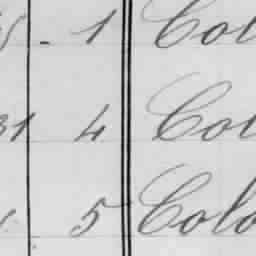 1 Col
31 4 Col
5 Colo